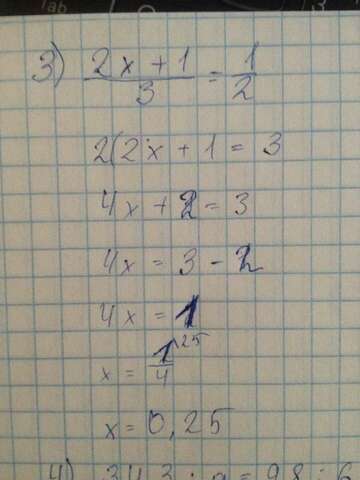 3) (2x + 1)/3 = 1/2
2(2x + 1 = 3
4x + 2 = 3
4x = 3 - 2
4x = 1
x = 1\25/4
x = 0,25
4) 34,3 : a = 9,8 : 6